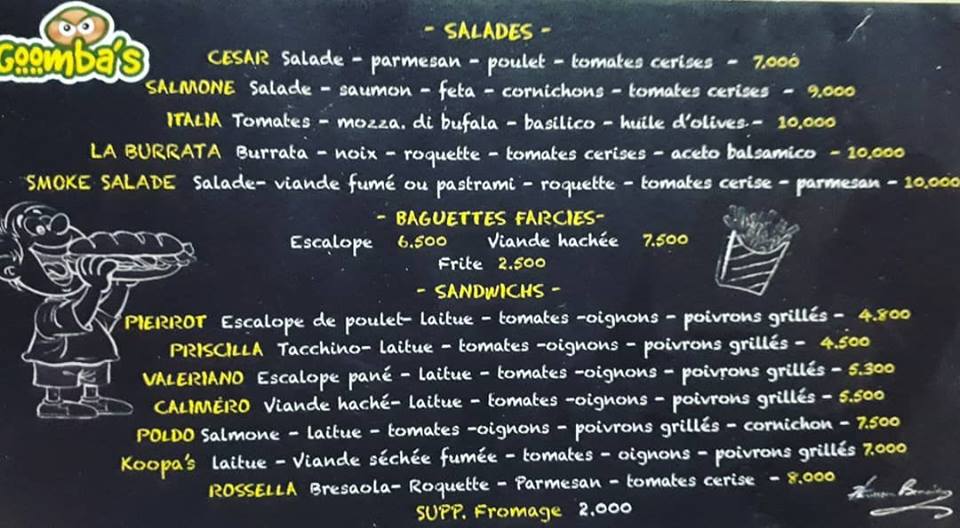 Goomba's
- SALADES -
CESAR Salade - parmesan - poulet - tomates cerises - 7,000
SALMONE Salade - saumon - feta - cornichons - tomates cerises - 9,000
ITALIA Tomates - mozza. di bufala - basilico - huile d'olives - 10,000
LA BURRATA Burrata - noix - roquette - tomates cerises - aceto balsamico - 10,000
SMOKE SALADE Salade- viande fumé ou pastrami - roquette - tomates cerise - parmesan - 10,000
- BAGUETTES FARCIES-
Escalope 6.500 Viande hachée 7.500
Frite 2.500
- SANDWICHS -
PIERROT Escalope de poulet- laitue - tomates -oignons - poivrons grillés - 4.800
PRISCILLA Tacchino- laitue - tomates -oignons - poivrons grillés - 4.500
VALERIANO Escalope pané - laitue - tomates -oignons - poivrons grillés - 5.300
CALIMÉRO Viande haché- laitue - tomates -oignons - poivrons grillés - 5.500
POLDO Salmone - laitue - tomates -oignons - poivrons grillés - cornichon - 7.500
Koopa's laitue - Viande séchée fumée - tomates - oignons - poivrons grillés 7.000
ROSSELLA Bresaola- Roquette - Parmesan - tomates cerise - 8.000
SUPP. Fromage 2.000